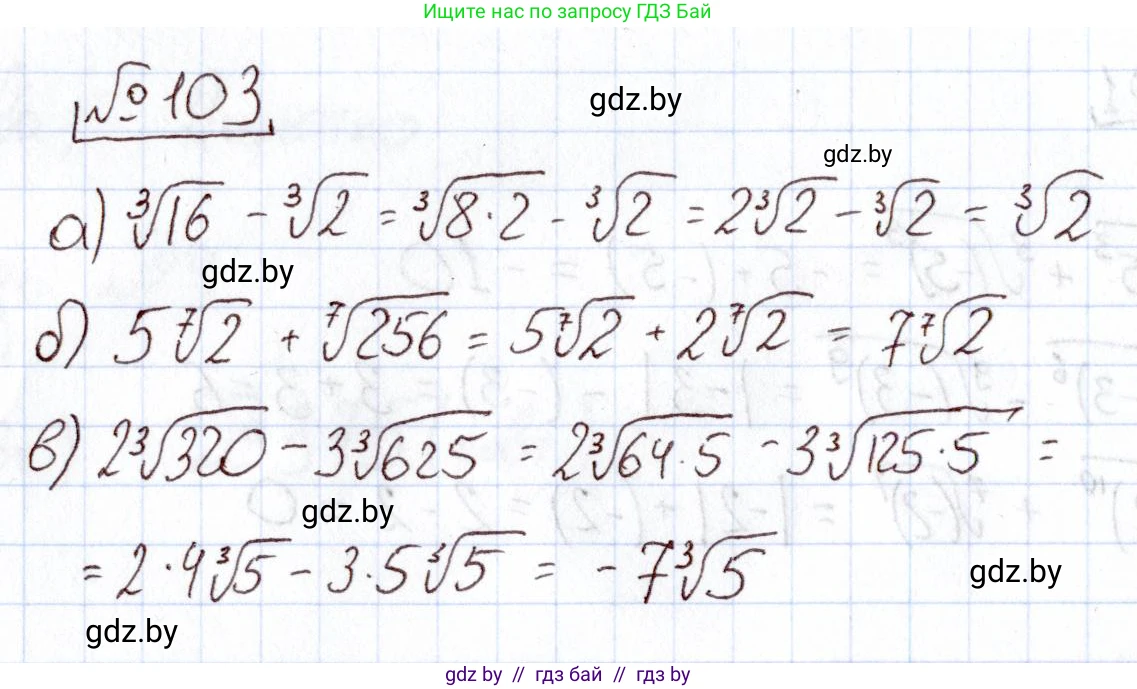 Ищите нас по запросу ГДЗ Бай
№ 103
gdz.by
gdz.by
а) ∛16 - ∛2 = ∛8·2 - ∛2 = 2∛2 - ∛2 = ∛2
gdz.by
б) 5 ⁷√2 + ⁷√256 = 5 ⁷√2 + 2 ⁷√2 = 7 ⁷√2
в) 2∛320 - 3∛625 = 2∛64·5 - 3∛125·5 =
gdz.by
= 2·4∛5 - 3·5∛5 = -7∛5
gdz.by
gdz.by
gdz by // гдз бай // gdz by